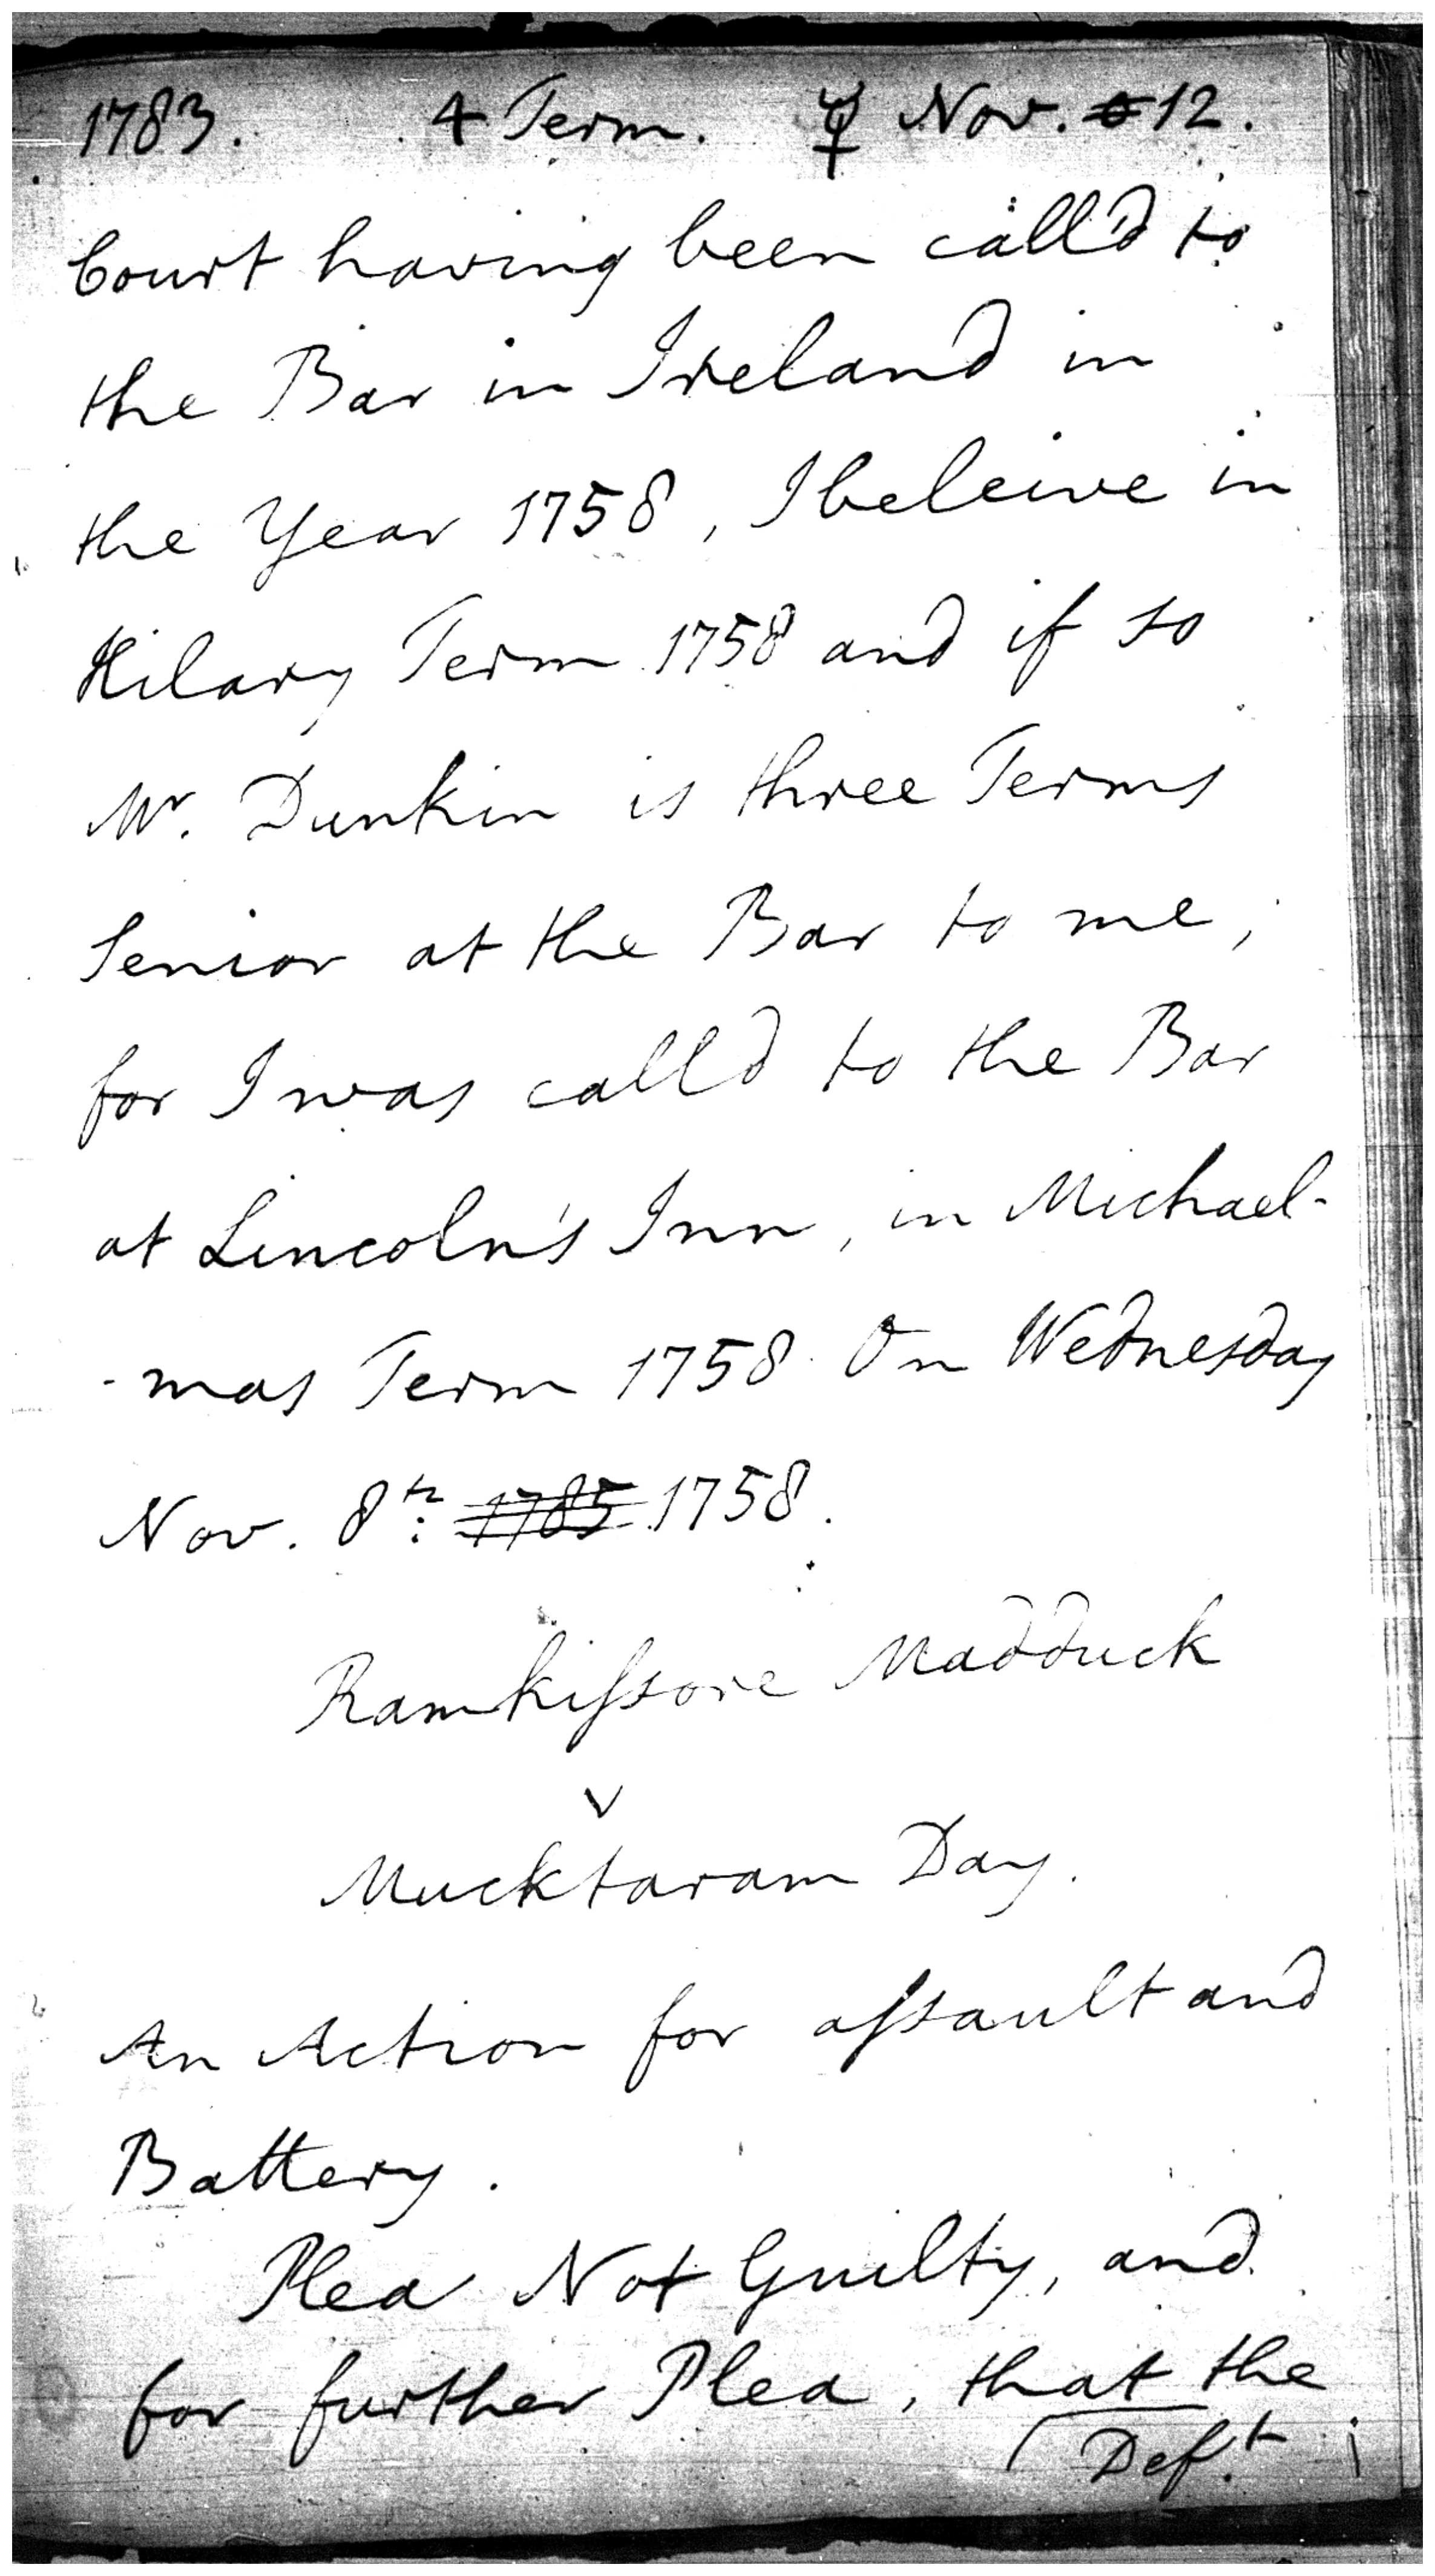 1783. 4 Term. ☿ Nov. 12.
Court having been call'd to
the Bar in Ireland in
the Year 1758, I beleive in
Hilary Term 1758 and if so
Mr. Dunkin is three Terms
Senior at the Bar to me,
for I was call'd to the Bar
at Lincoln's Inn, in Michael-
-mas Term 1758 On Wednesday
Nov. 8th: 1785 1758.
Ramkissore Madduck
v
Mucktaram Day.
An Action for assault and
Battery.
Plea Not Guilty, and
for further Plea, that the
Def.t